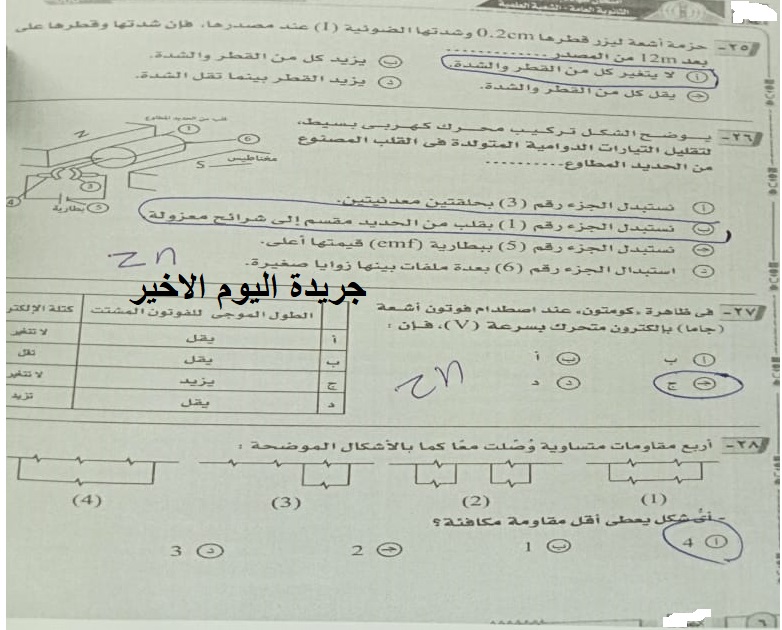 الثانوية العامة - الشعبة العلمية
٢٥- حزمة أشعة ليزر قطرها 0.2cm وشدتها الضوئية (I) عند مصدرها، فإن شدتها وقطرها على
بعد 12m من المصدر ..................
أ لا يتغير كل من القطر والشدة.
ب يزيد كل من القطر والشدة.
ج يقل كل من القطر والشدة.
د يزيد القطر بينما تقل الشدة.
٢٦- يوضح الشكل تركيب محرك كهربى بسيط،
لتقليل التيارات الدوامية المتولدة فى القلب المصنوع
من الحديد المطاوع..............
قلب من الحديد المطاوع
N
1
6
مغناطيس
S
3
4
5
بطارية
أ نستبدل الجزء رقم (3) بحلقتين معدنيتين.
ب نستبدل الجزء رقم (1) بقلب من الحديد مقسم إلى شرائح معزولة
ج نستبدل الجزء رقم (5) ببطارية (emf) قيمتها أعلى.
د استبدال الجزء رقم (6) بعدة ملفات بينها زوايا صغيرة.
zn
جريدة اليوم الاخير
٢٧- فى ظاهرة «كومتون» عند اصطدام فوتون أشعة
(جاما) بإلكترون متحرك بسرعة (V)، فإن :
الطول الموجى للفوتون المشتت كتلة الإلكتر
أ يقل لا تتغير
ب يقل تقل
ج يزيد لا تتغير
د يقل تزيد
أ ب
ب أ
ج ج
د د
zn
٢٨- أربع مقاومات متساوية وُصّلت معًا كما بالأشكال الموضحة :
(1) (2) (3) (4)
- أىُّ شكل يعطى أقل مقاومة مكافئة؟
أ 4
ب 1
ج 2
د 3
٦